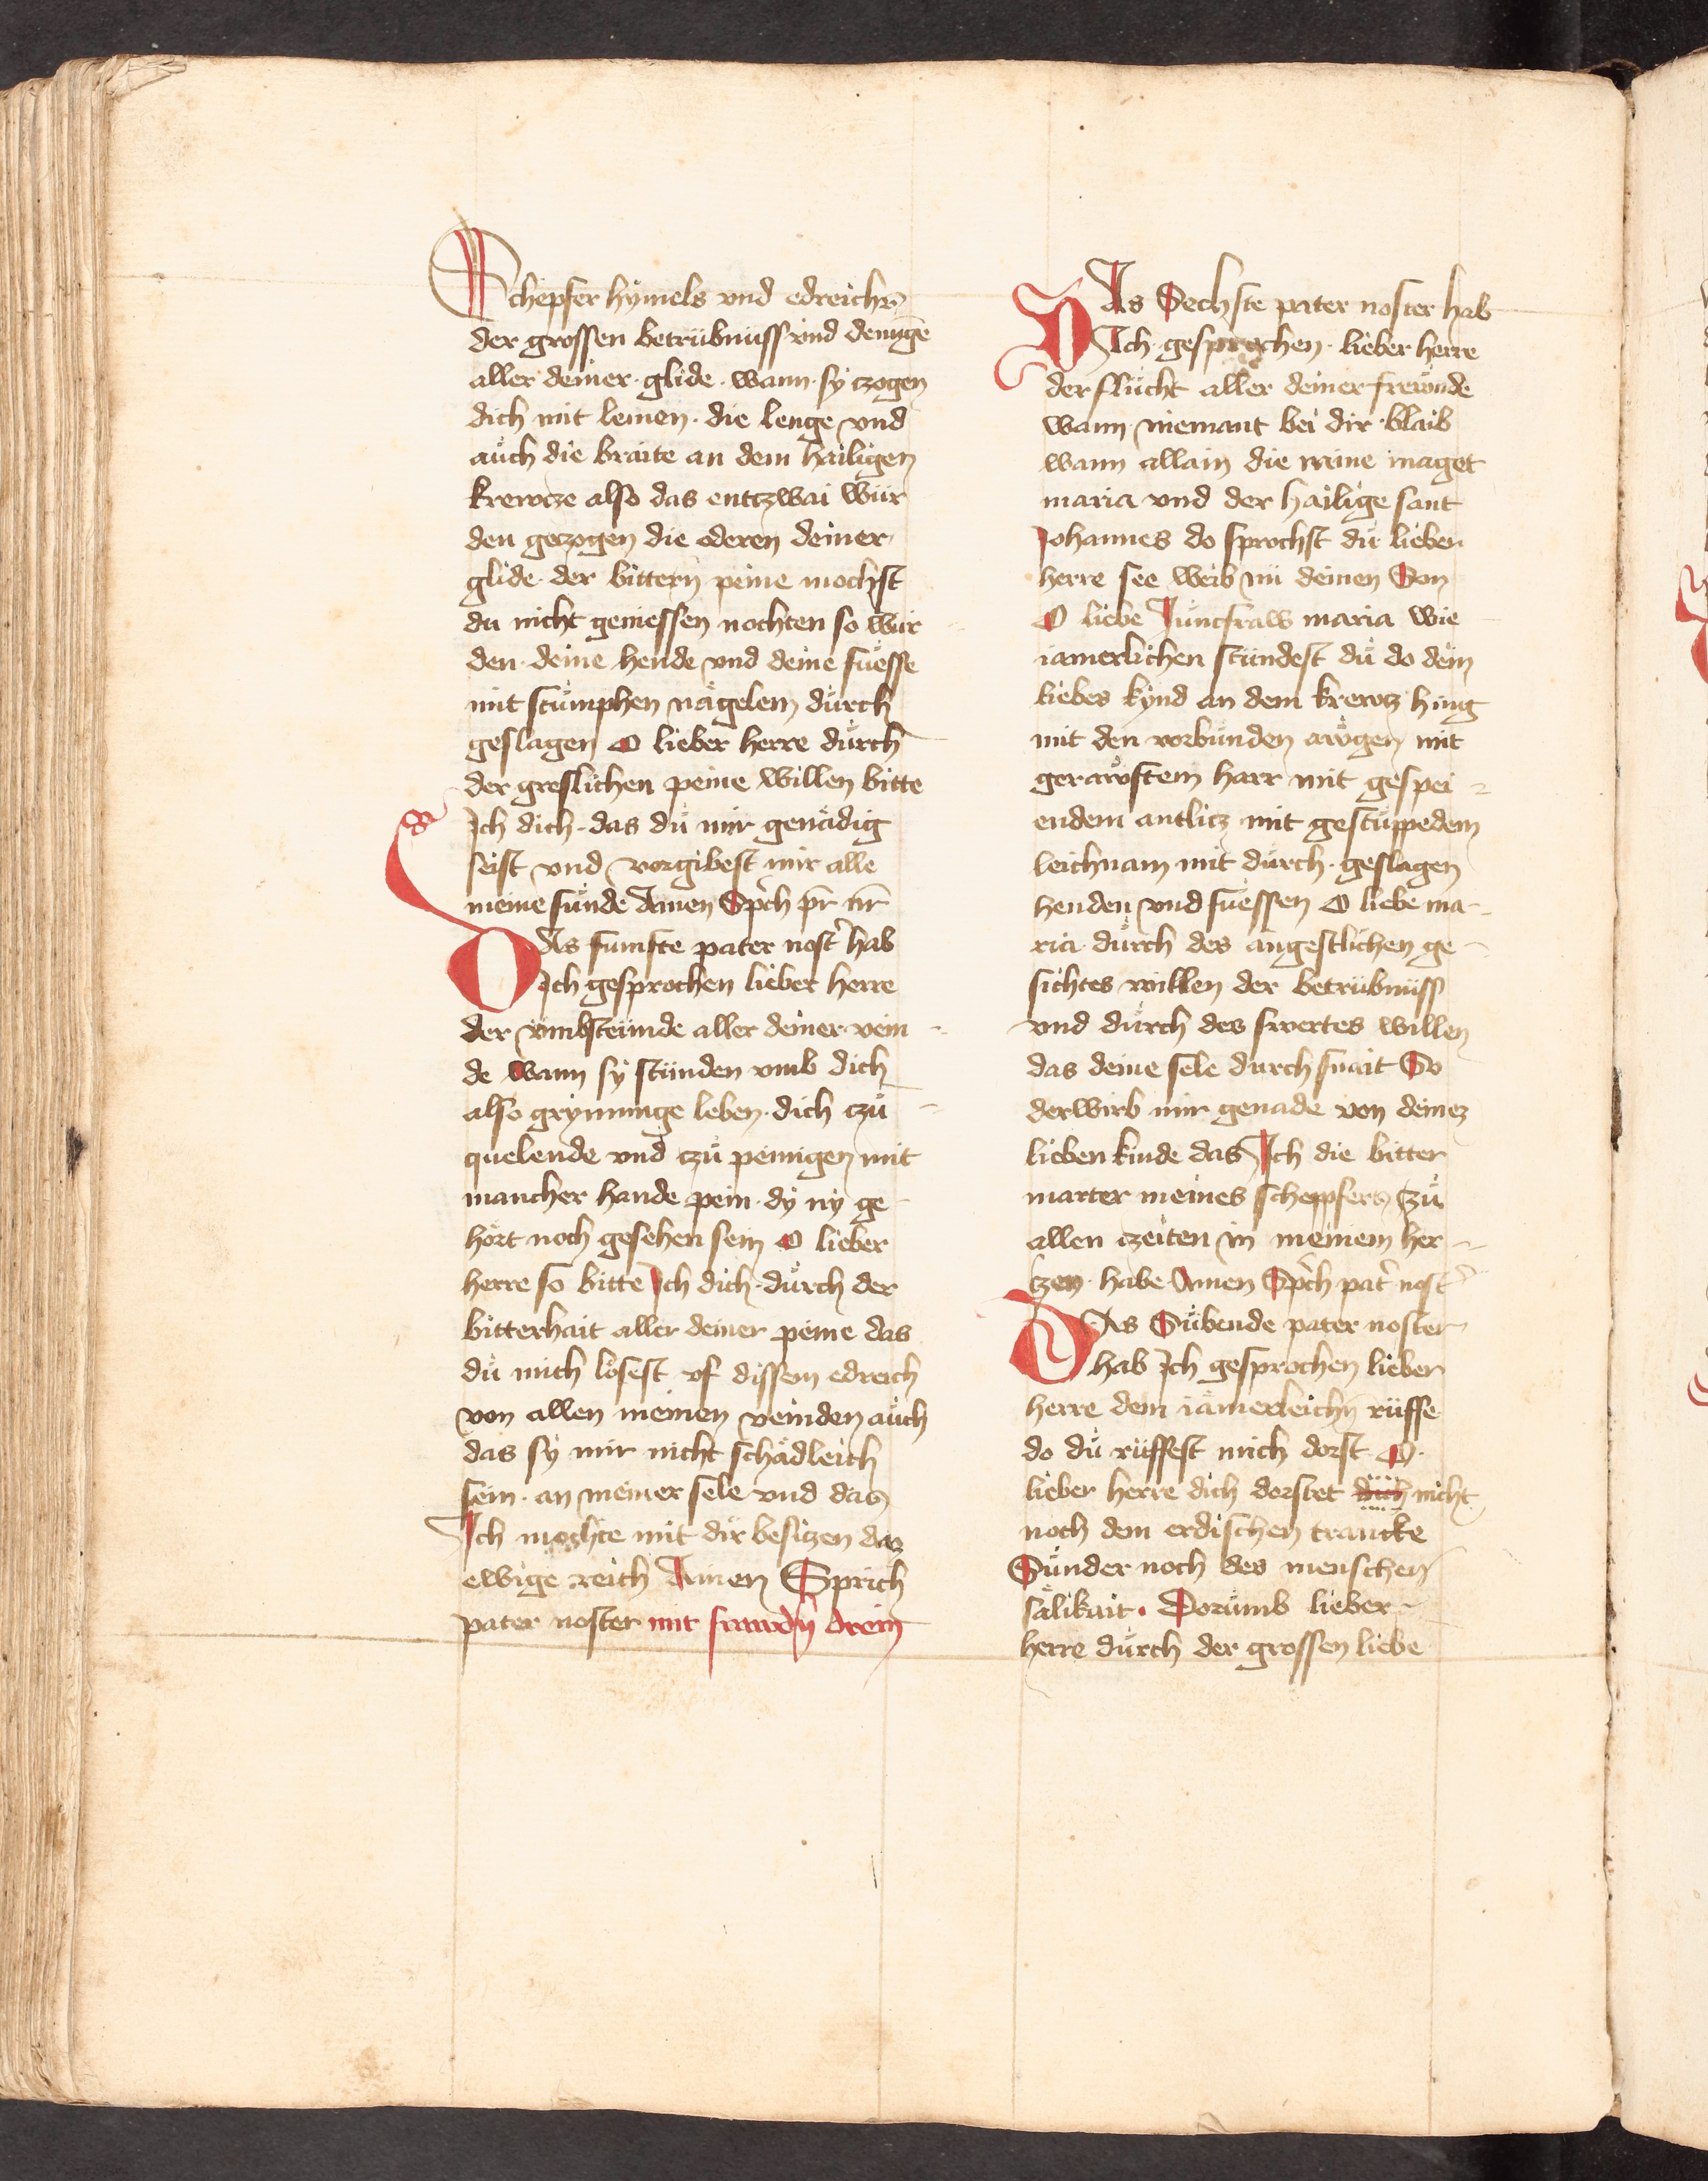 Schepfer hymels vnd edreichs
der grossen betrübnüss vnd denunge
aller deiner glide · wann · sy czogen
dich mit leinen · die lenge vnd
auch die braite an dem hailigen
krewcze also das entczwai wür
den geczogen die oderen deiner
glide · der bittern peine mochst
du nicht geniessen nochten so wür
den · deine hende vnd deine füesse
mit stumphen nägelen dürch
geslagen O lieber herre dürch
der greslichen peine willen bitte
Ich dich · das dü mir genädig
seist vnd vorgibest mir alle
meine sünde Amen Sprich pr nr
DAs fumfte pater noster hab
Ich gesprochen lieber herre
der vmbsteünde aller deiner vein
de wann sy stünden vmb dich
also grymmige leben · dich czü
quelende vnd czü peinigen mit
mancher hande pein · dy ny ge
hört noch gesehen sein O lieber
herre so bitte Ich dich · dürch der
bitterhait aller deiner peine das
dü mich lösest vf dissem edreich
von allen meinen veinden auch
das sy mir nicht schädleich
sein · an meiner sele vnd das
Ich mochte mit dir besitzen das
ewige reich Amen Sprich
pater noster mit
DAs Sechste pater noster hab
Ich · gesprochen · lieber herre
der flücht aller deiner frewnde
wann niemant bei dir · blaib
wann allain die reine maget
maria vnd der hailige sant
Johannes do sprochst dü lieber
herre see weib nü deinen Son
O liebe Jüncfraw maria wie
iamerlichen stündest dü do dein
liebes kynd an dem krewcz hing
mit den vorbünden awgen mit
gerawftem harr mit gespei =
endem antlicz mit gestuppedem
leichnam mit dürch · geslagen
henden vnd füessen O liebe ma-
ria dürch des angestlichen ge-
sichtes willen der betrübnüss
vnd dürch des swertes willen
das deine sele dürch snait So
derwirb mir genade von deinez
lieben kinde das Ich die bitter
marter meines scheppfers czü
allen czeiten in meinem her-
czen · habe Amen Sprich pater noster
DAs Sübende pater noster
hab Ich gesprochen lieber
herre dem iämerleichn rüffe
do dü rüffest mich dorst · O ·
lieber herre dich dorstet dich nicht
noch dem erdischen trancke
Sünder noch des menschen
sälikait · Dorümb lieber
herre dürch der grossen liebe